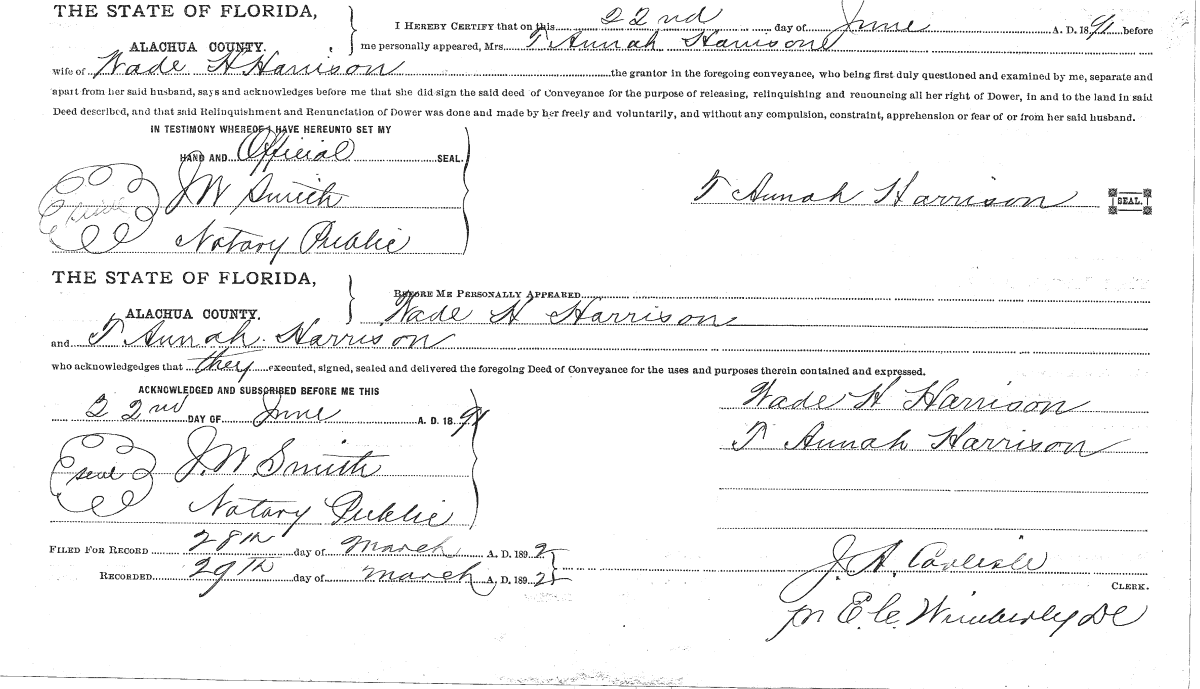 THE STATE OF FLORIDA,
ALACHUA COUNTY.
I HEREBY CERTIFY that on this 22nd day of June A. D. 1891 before
me personally appeared, Mrs. T Annah Harrison
wife of Wade H Harrison the grantor in the foregoing conveyance, who being first duly questioned and examined by me, separate and
apart from her said husband, says and acknowledges before me that she did sign the said deed of Conveyance for the purpose of releasing, relinquishing and renouncing all her right of Dower, in and to the land in said
Deed described, and that said Relinquishment and Renunciation of Dower was done and made by her freely and voluntarily, and without any compulsion, constraint, apprehension or fear of or from her said husband.
IN TESTIMONY WHEREOF I HAVE HEREUNTO SET MY
HAND AND Official SEAL.
J W Smith
Notary Public
T Annah Harrison SEAL.
THE STATE OF FLORIDA,
ALACHUA COUNTY.
BEFORE ME PERSONALLY APPEARED
Wade H Harrison
and T Annah Harrison
who acknowledgedges that they executed, signed, sealed and delivered the foregoing Deed of Conveyance for the uses and purposes therein contained and expressed.
ACKNOWLEDGED AND SUBSCRIBED BEFORE ME THIS
22nd DAY OF June A. D. 1891
seal
J. W. Smith
Notary Public
Wade H Harrison
T Annah Harrison
FILED FOR RECORD 28th day of March A. D. 1892
RECORDED 29th day of March A. D. 1892
J. A. Carlisle
CLERK.
pr E. C. Wimberly DC